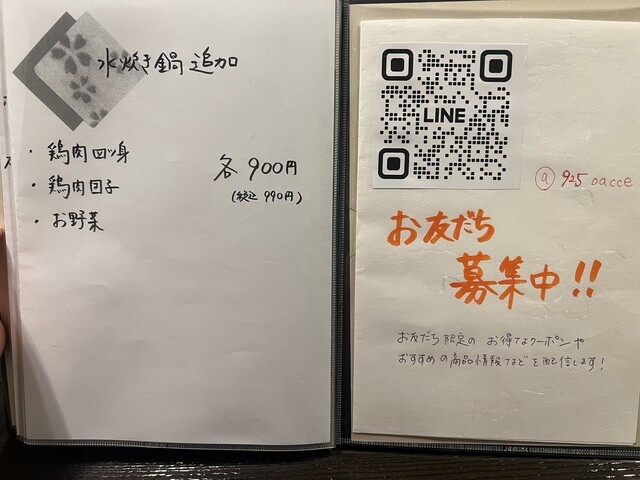 水炊き鍋 追加
・鶏肉四ツ身
・鶏肉団子
・お野菜
各 900円
(税込 990円)
LINE
@ 925oacce
お友だち
募集中!!
お友だち限定の お得なクーポンや
おすすめの商品情報などを配信します!